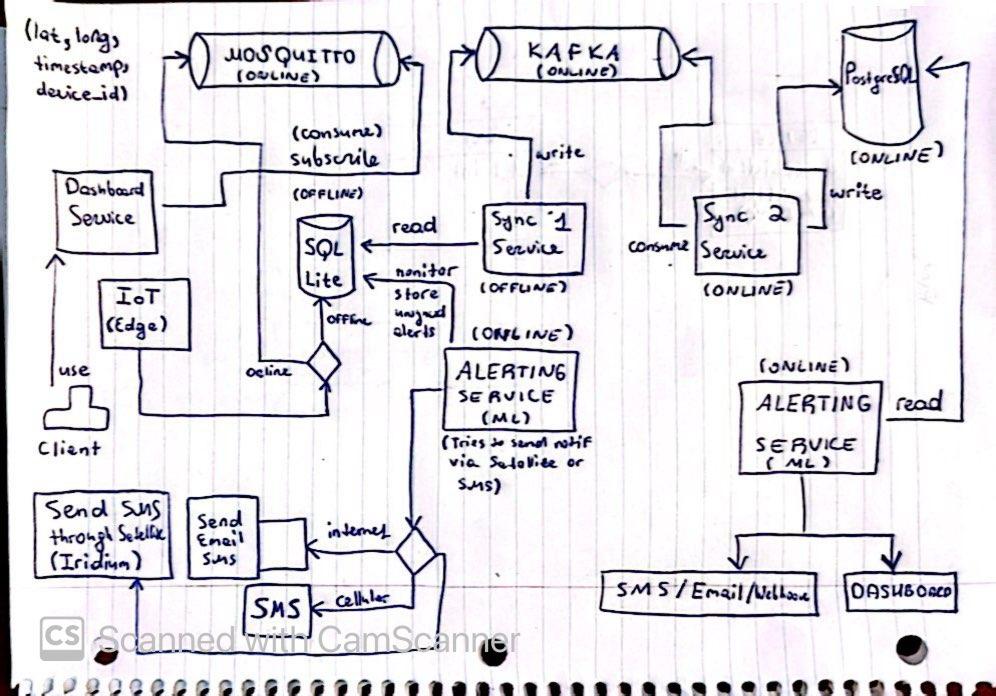 (lat, long,
timestamp,
device_id)
MOSQUITTO
(ONLINE)
KAFKA
(ONLINE)
PostgreSQL
(ONLINE)
(consume)
subscribe
write
write
Dashboard
Service
(OFFLINE)
SQL
Lite
read
Sync 1
Service
(OFFLINE)
consume
Sync 2
Service
(ONLINE)
IoT
(Edge)
offline
online
monitor
store
alerts
(OFFLINE)
ALERTING
SERVICE
(ML)
(Tries to send notif
via Satellite or
SMS)
use
Client
(ONLINE)
ALERTING
SERVICE
(ML)
read
Send SMS
through Satellite
(Iridium)
Send
Email
SMS
internet
SMS
cellular
SMS/Email/Webhook
DASHBOARD
CS Scanned with CamScanner